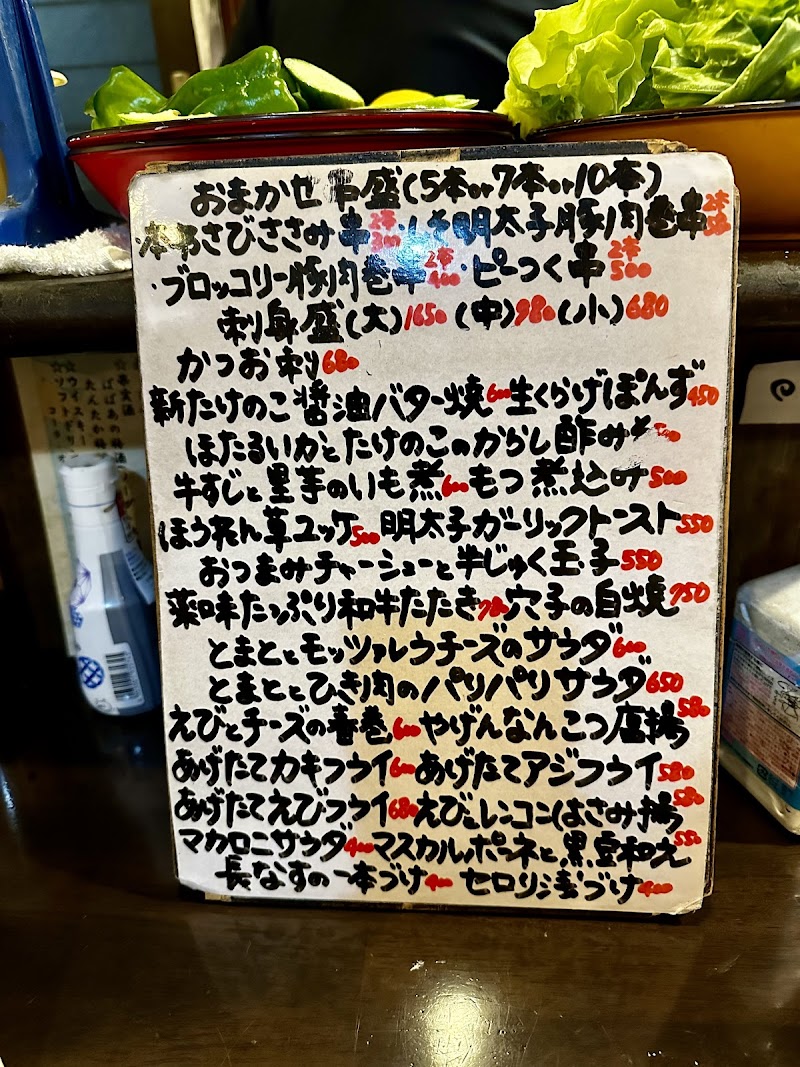 おまかせ串盛(5本or7本or10本)
・本わさびささみ串2本300・しそ明太子豚肉巻串2本
・ブロッコリー豚肉巻串2本400・ピーつく串2本500
刺身盛(大)1650(中)980(小)680
かつお刺680
新たけのこ醤油バター焼600生くらげぽんず450
ほたるいかとたけのこのからし酢みそ
牛すじと里芋のいも煮600もつ煮込み500
ほうれん草ユッケ500明太子ガーリックトースト550
おつまみチャーシューと半じゅく玉子550
薬味たっぷり和牛たたき780穴子の白焼750
とまととモッツァレラチーズのサラダ600
とまととひき肉のパリパリサラダ650
えびとチーズの春巻600やげんなんこつ唐揚580
あげたてカキフライ600あげたてアジフライ580
あげたてえびフライ680えびとレンコンはさみ揚580
マカロニサラダ400マスカルポーネと黒豆和え550
長なすの一本づけ400セロリ浅づけ400